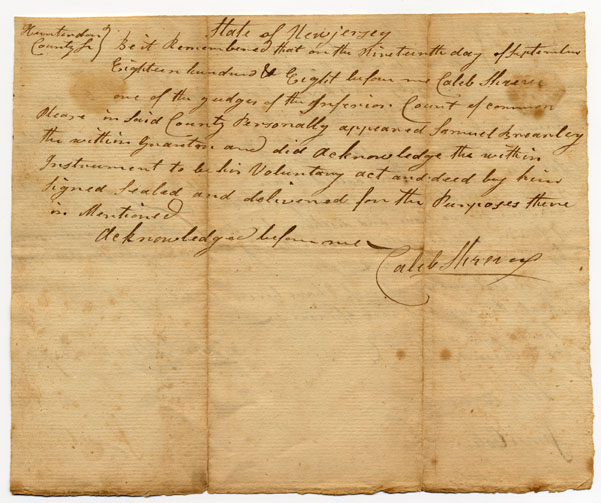 State of New jersey
Hunterdon
County Ss } Be it Remembered that on the Nineteenth day of September
Eighteen hundred & Eight before me Caleb Shreve
one of the Judges of the Inferior Court of common
Pleas in Said County Personally appeared Samuel Brearley
the within Grantor and did acknowledge the within
Instrument to be his Voluntary act and deed by him
Signed Sealed and delivered for the Purposes there
in Mentioned
Acknowledged before me
Caleb Shreve